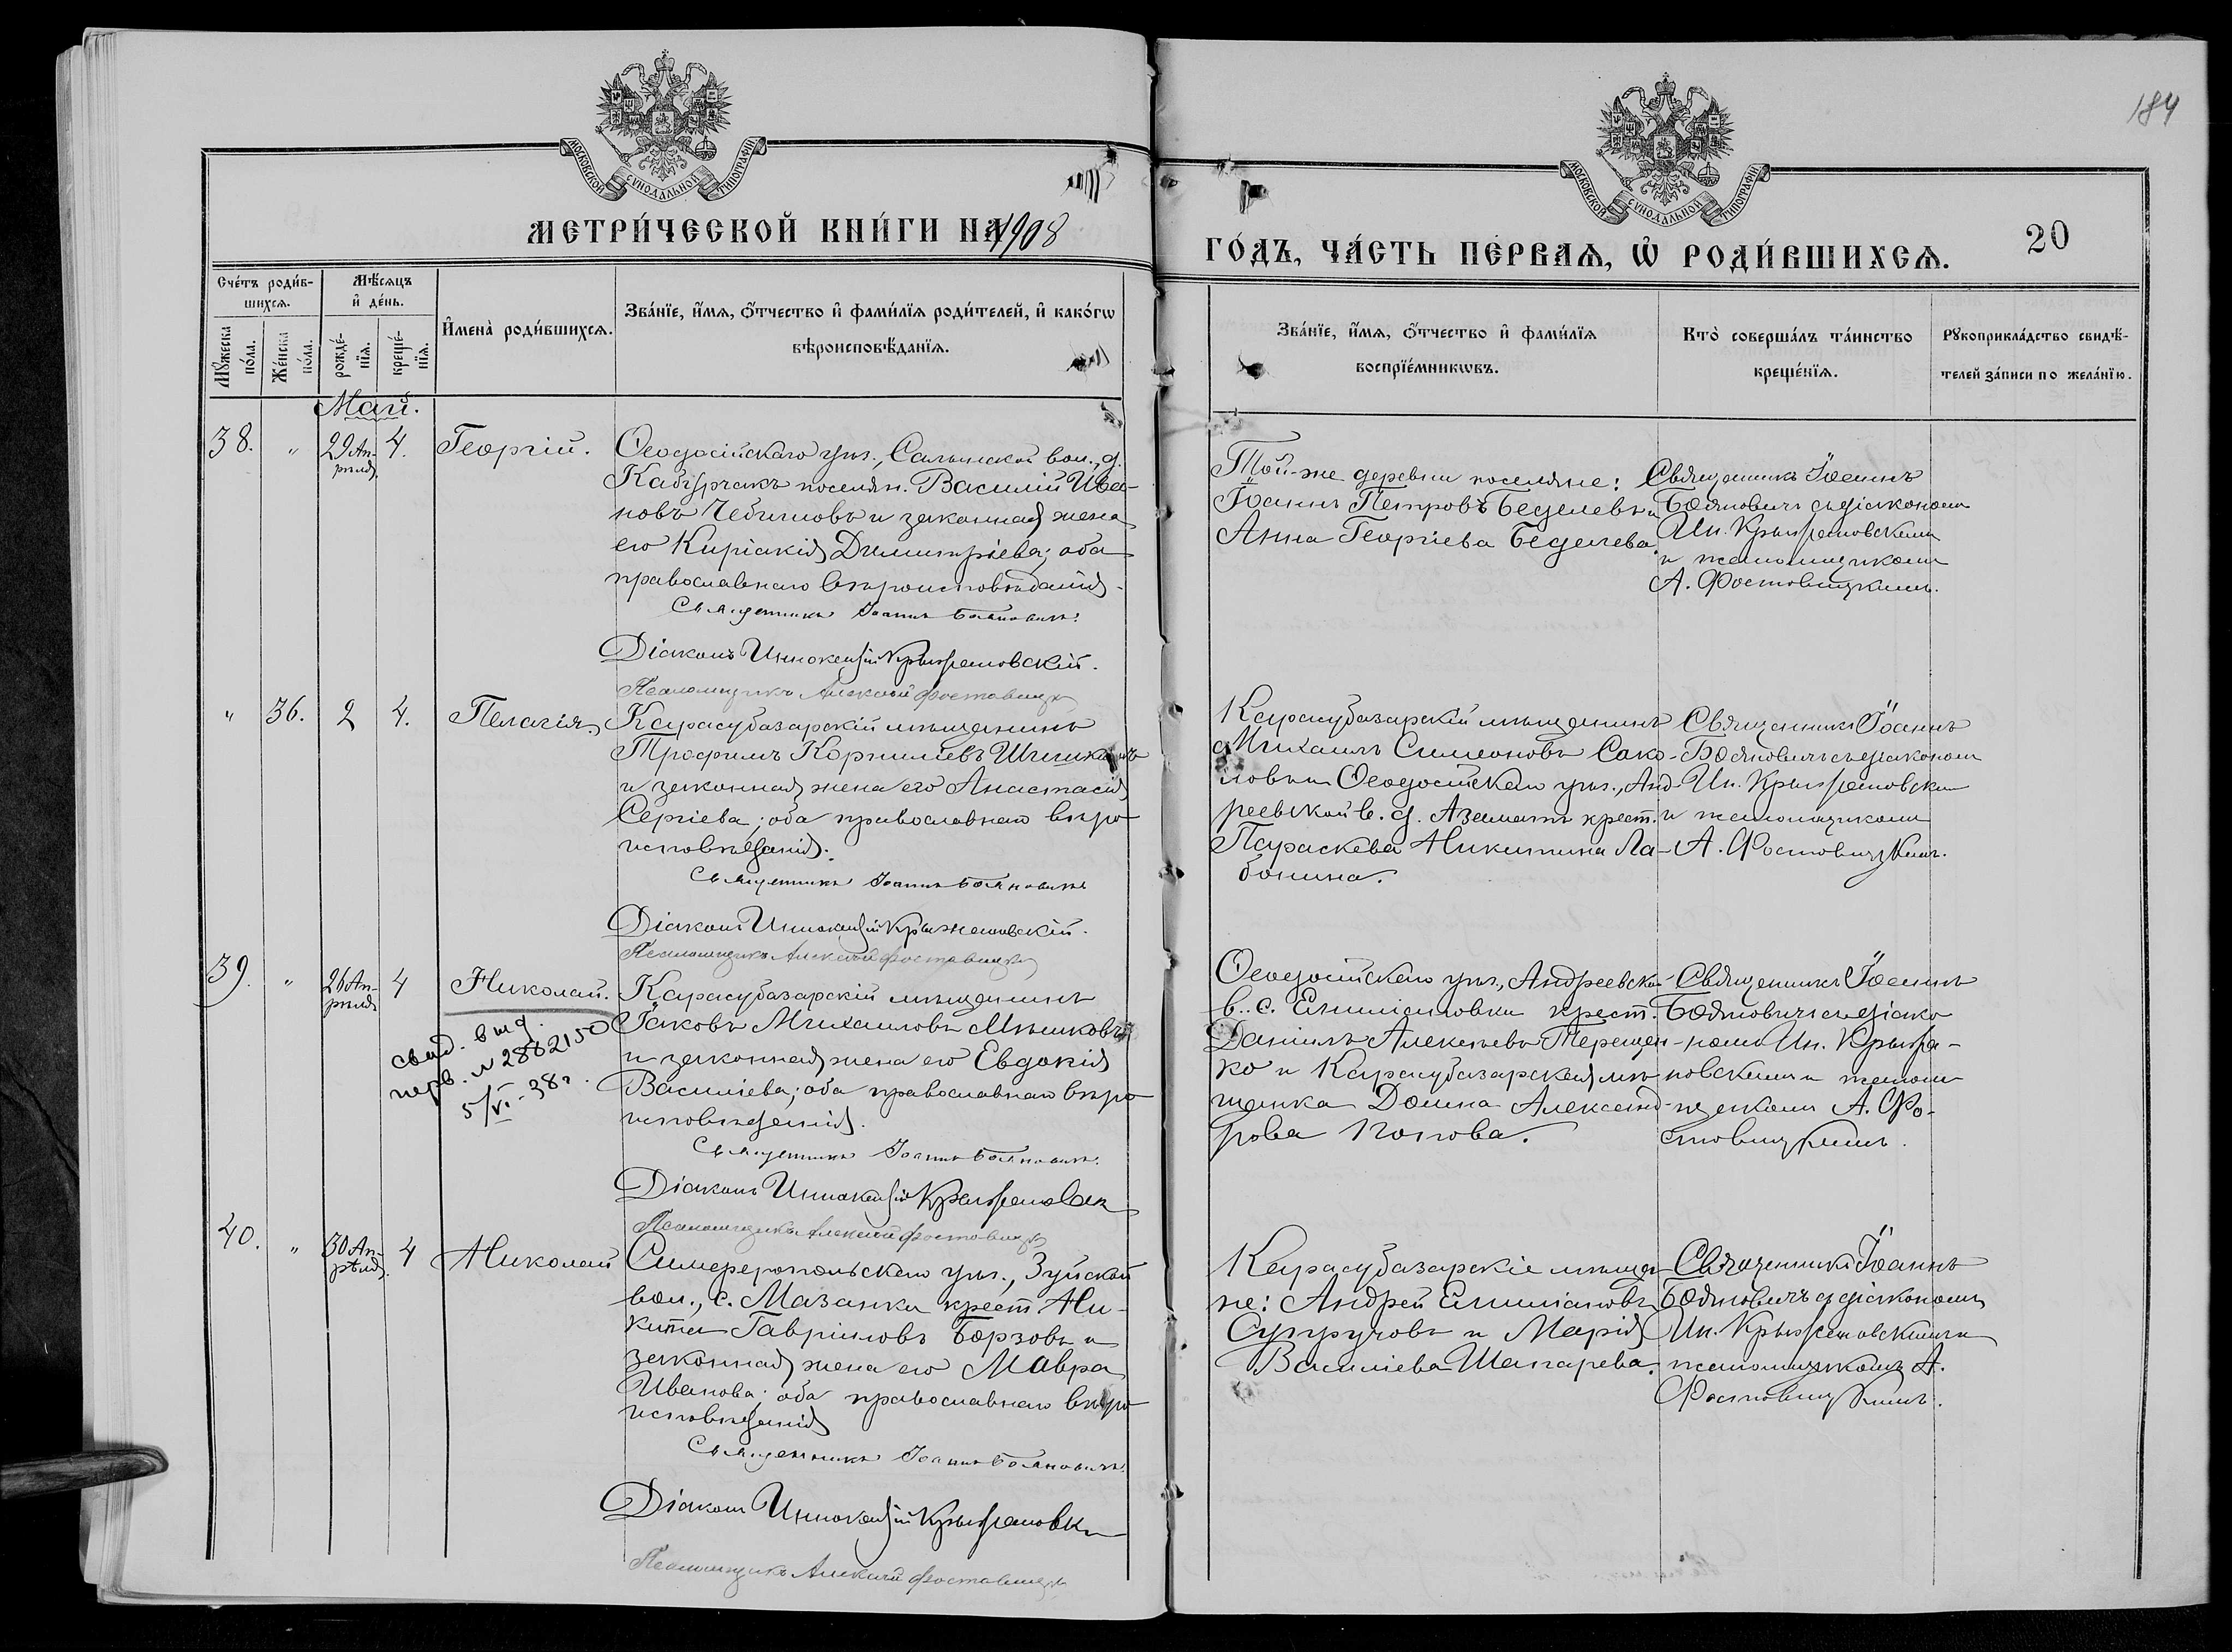 184
МОСКОВСКОЙ СѴНОДАЛЬНОЙ ТИПОГРАФІИ
МЕТРИ́ЧЕСКОЙ КНИ́ГИ НА 1908
МОСКОВСКОЙ СѴНОДАЛЬНОЙ ТИПОГРАФІИ
ГО́ДЪ, ЧА́СТЬ ПЕ́РВАѦ, Ѡ҆ РОДИ́ВШИХСѦ.
20
Сче́тъ роди́в-
шихсѧ.
Мѣ́сѧцъ
и҆ де́нь.
Мꙋ́жеска
по́ла.
Же́нска
по́ла.
рожде́-
нїѧ.
креще́-
нїѧ.
И҆мена̀ роди́вшихсѧ.
Зва́нїе, и҆́мѧ, ѻ҆́тчество и҆ фами́лїѧ роди́телей, и҆ како́гѡ
вѣроисповѣ́данїѧ.
Зва́нїе, и҆́мѧ, ѻ҆́тчество и҆ фами́лїѧ
воспрїе́мникѡвъ.
Кто̀ соверша́лъ та́инство
креще́нїѧ.
Рꙋкоприкла́дство свидѣ́-
телей за́писи по жела́нїю.
Май.
38. " 29 Ап-
рѣля
4. Георгій.
Ѳеодосійскаго уѣз., Салынской вол., д.
Кабурчакъ поселян. Василій Ива-
новъ Чебитовъ и законная жена
его Киріакія Димитріева; оба
православнаго вѣроисповѣданія.
Священникъ Іоаннъ Бояновичъ.
Діаконъ Иннокентій Крыжановскій.
Псаломщикъ Алексій Фоставицкі
Той-же деревни поселяне:
Іоаннъ Петровъ Беделевъ и
Анна Георгіева Беделева.
Священникъ Іоаннъ
Бояновичъ съ діакономъ
Ин. Крыжановскимъ
и псаломщикомъ
А. Фостовицкимъ.
" 36. 2 4. Пелагія.
Карасубазарскій мѣщанинъ
Трофимъ Корниліевъ Шишкинъ
и законная жена его Анастасія
Сергіева; оба православнаго вѣро-
исповѣданія.
Священникъ Іоаннъ Бояновичъ
Діаконъ Иннокентій Крыжановскій.
Псаломщикъ Алексій Фоставицкі
Карасубазарскій мѣщанинъ
Михаилъ Симеоновъ Соко-
ловъ и Ѳеодосійскаго уѣз., Анд-
реевской в. д. Азаматъ крест.
Параскева Никитина Ла-
бонина.
Священникъ Іоаннъ
Бояновичъ съ діакономъ
Ин. Крыжановским
и псаломщикомъ
А. Фостовицкимъ.
39. " 26 Ап-
рѣля
4 Николай.
свид. выд.
перв. N 2882150
5/VI-38 г.
Карасубазарскій мѣщанинъ
Іаковъ Михаиловъ Мѣшковъ
и законная жена его Евдокія
Василіева; оба православнаго вѣро-
исповѣданія.
Священникъ Іоаннъ Бояновичъ.
Діаконъ Иннокентій Крыжановскі
Псаломщикъ Алексій Фостовицкі
Ѳеодосійскаго уѣз., Андреевской
в. с. Емиліановки крест.
Даніилъ Алексѣевъ Терещен-
ко и Карасубазарская мѣ-
щанка Домна Александ-
рова Попова.
Священникъ Іоаннъ
Бояновичъ съ діако-
номъ Ин. Крыжа-
новскимъ и псалом-
щикомъ А. Фо-
стовицкимъ.
40. " 30 Ап-
рѣля.
4 Николай
Симферопольскаго уѣз., Зуйской
вол., с. Мазанки крест. Ни-
кита Гавріиловъ Борзовъ и
законная жена его Мавра
Иванова; оба православнаго вѣро-
исповѣданія
Священникъ Іоаннъ Бояновичъ.
Діаконъ Иннокентій Крыжановскі
Псаломщикъ Алексій Фоставицкі
Карасубазарскіе мѣща-
не: Андрей Емиліановъ
Супруновъ и Марія
Василіева Шапарева.
Священникъ Іоаннъ
Бояновичъ съ діакономъ
Ин. Крыжановскимъ и
псаломщикомъ А.
Фостовицкимъ.